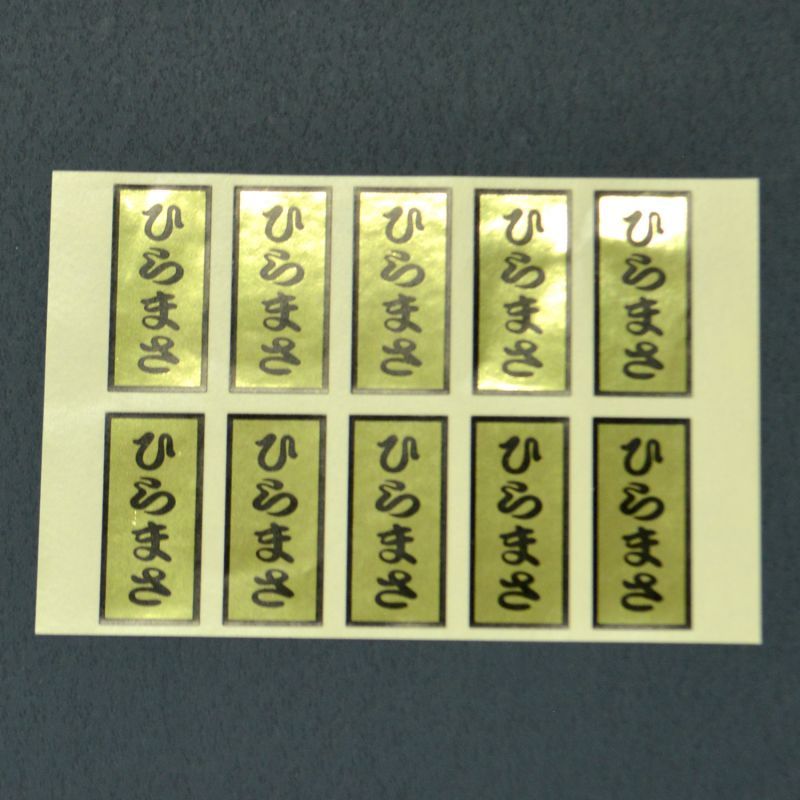 ひらまさ
ひらまさ
ひらまさ
ひらまさ
ひらまさ
ひらまさ
ひらまさ
ひらまさ
ひらまさ
ひらまさ